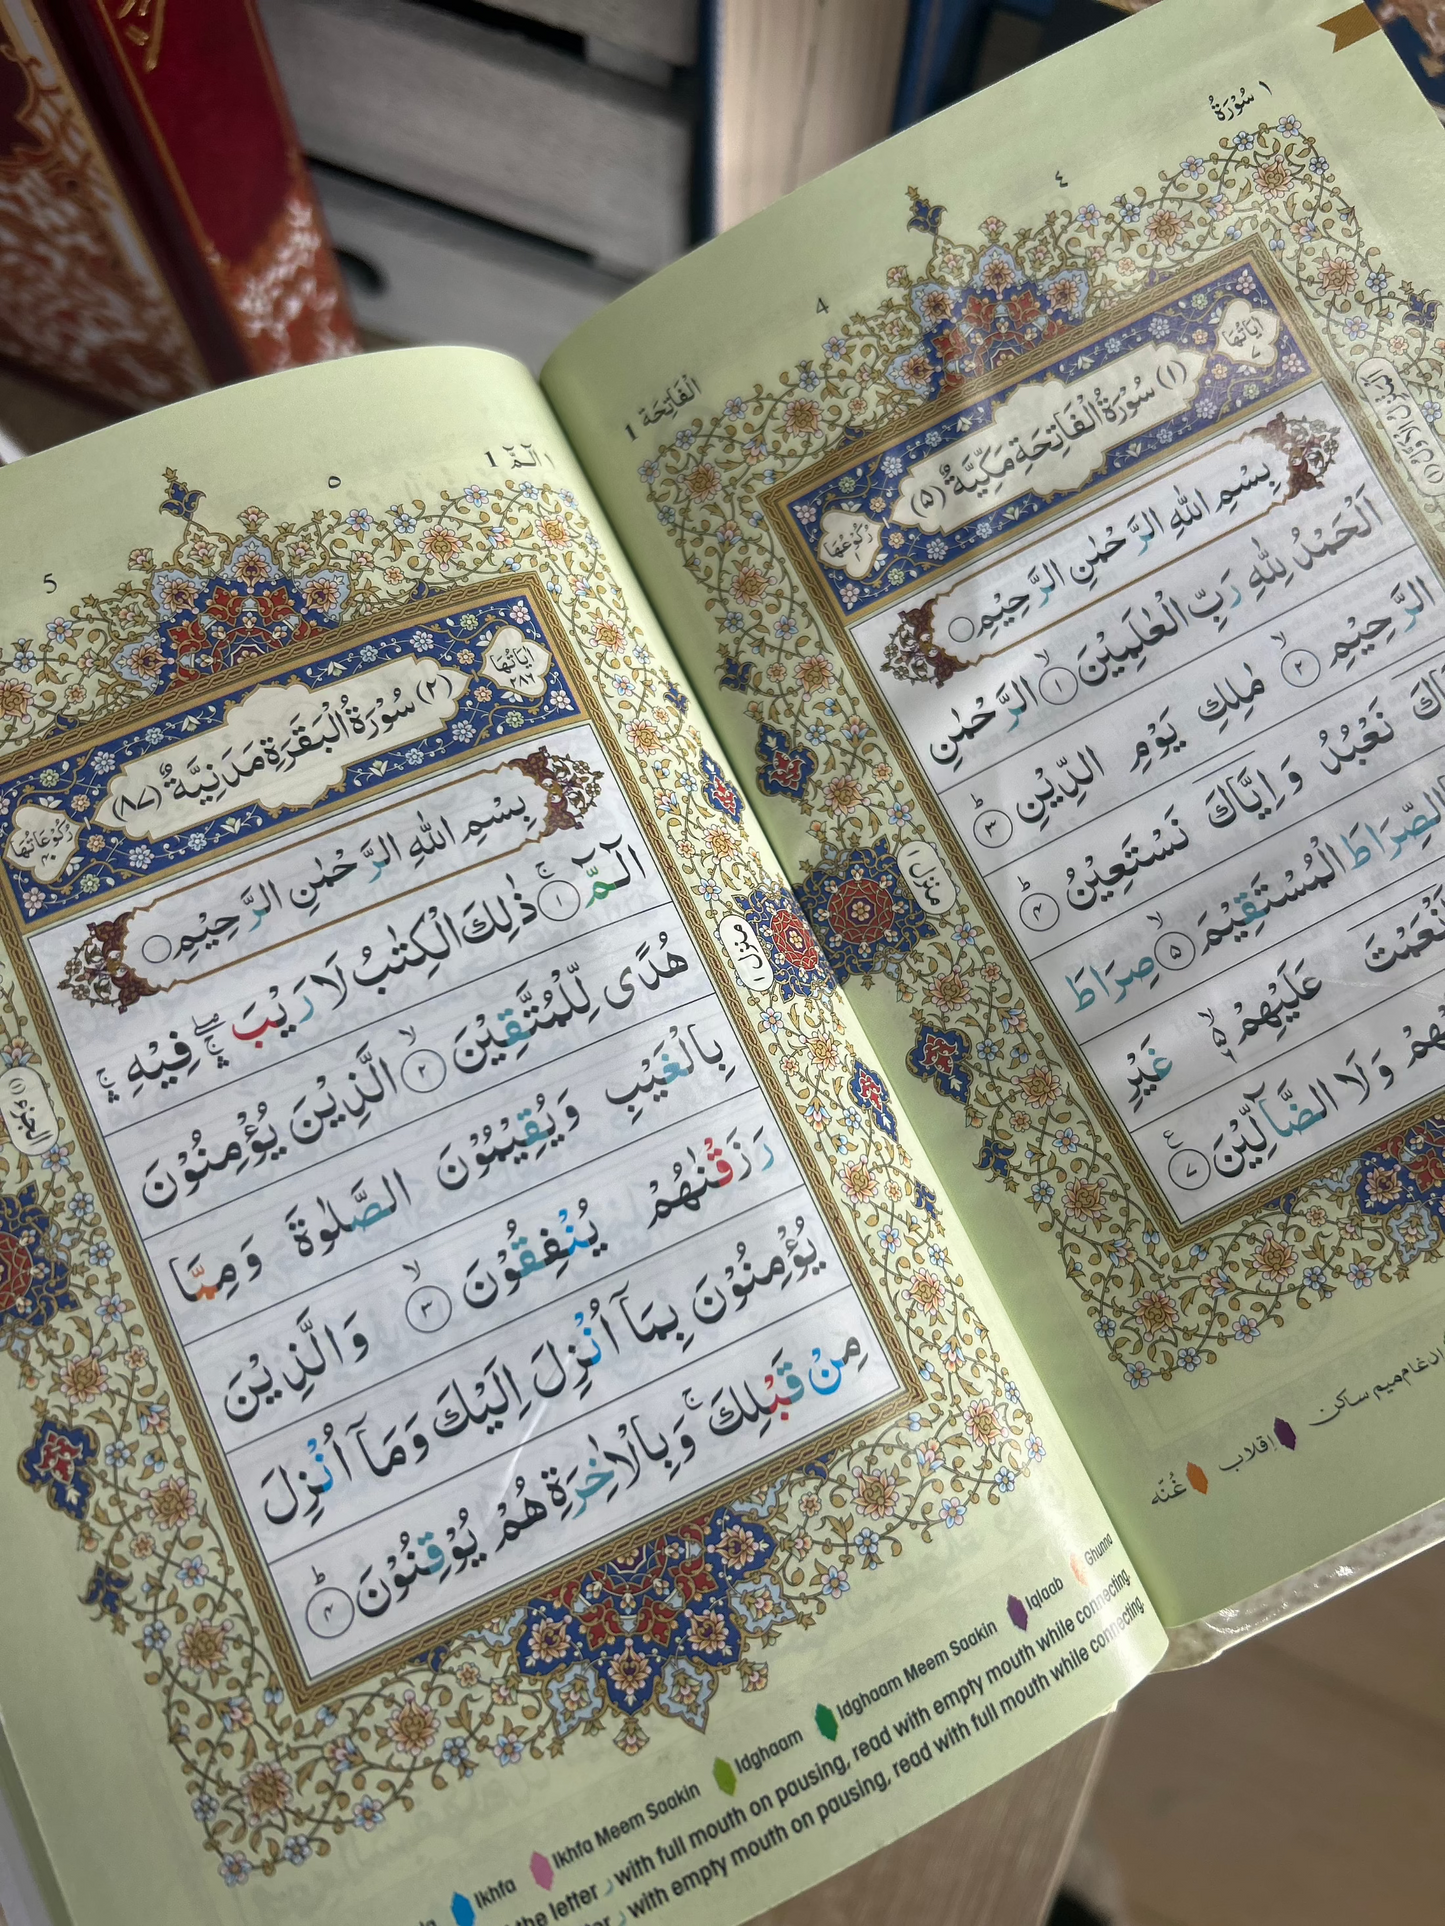 ١ سُوْرَةُ
٤
4
الْفَاتِحَة 1
اٰيَاتُهَا ٧
(١) سُوْرَةُ الْفَاتِحَةِ مَكِّيَّةٌ (٥)
رُكُوْعُهَا ١
بِسْمِ اللّٰهِ الرَّحْمٰنِ الرَّحِيْمِ
اَلْحَمْدُ لِلّٰهِ رَبِّ الْعٰلَمِيْنَ ۙ ١ الرَّحْمٰنِ
الرَّحِيْمِ ۙ ٢ مٰلِكِ يَوْمِ الدِّيْنِ ؕ ٣
نَعْبُدُ وَ اِيَّاكَ نَسْتَعِيْنُ ؕ ٤
الصِّرَاطَ الْمُسْتَقِيْمَ ۙ ٥ صِرَاطَ
عَلَيْهِمْ ۙ٦ غَيْرِ
وَ لَا الضَّآلِّيْنَ ۧ ٧
منزل ١
ادغام میم ساکن
اقلاب
غُنّه
١ آلٓمّٓ 1
٥
5
اٰيَاتُهَا ٢٨٦
(٢) سُوْرَةُ الْبَقَرَةِ مَدَنِيَّةٌ (٨٧)
رُكُوْعَاتُهَا ٤٠
بِسْمِ اللّٰهِ الرَّحْمٰنِ الرَّحِيْمِ
الٓمّٓ ۚ ١ ذٰلِكَ الْكِتٰبُ لَا رَيْبَ ۛۖ فِيْهِ ۛۚ
هُدًى لِّلْمُتَّقِيْنَ ۙ ٢ الَّذِيْنَ يُؤْمِنُوْنَ
بِالْغَيْبِ وَيُقِيْمُوْنَ الصَّلٰوةَ وَمِمَّا
رَزَقْنٰهُمْ يُنْفِقُوْنَ ۙ ٣ وَالَّذِيْنَ
يُؤْمِنُوْنَ بِمَآ اُنْزِلَ اِلَيْكَ وَمَآ اُنْزِلَ
مِنْ قَبْلِكَ ۚ وَبِالْاٰخِرَةِ هُمْ يُوْقِنُوْنَ ؕ ٤
منزل ١
الجزء (١)
Ikhfa Ikhfa Meem Saakin Idghaam Idghaam Meem Saakin Iqlaab Ghunna
the letter ر with full mouth on pausing, read with empty mouth while connecting.
ر with empty mouth on pausing, read with full mouth while connecting.